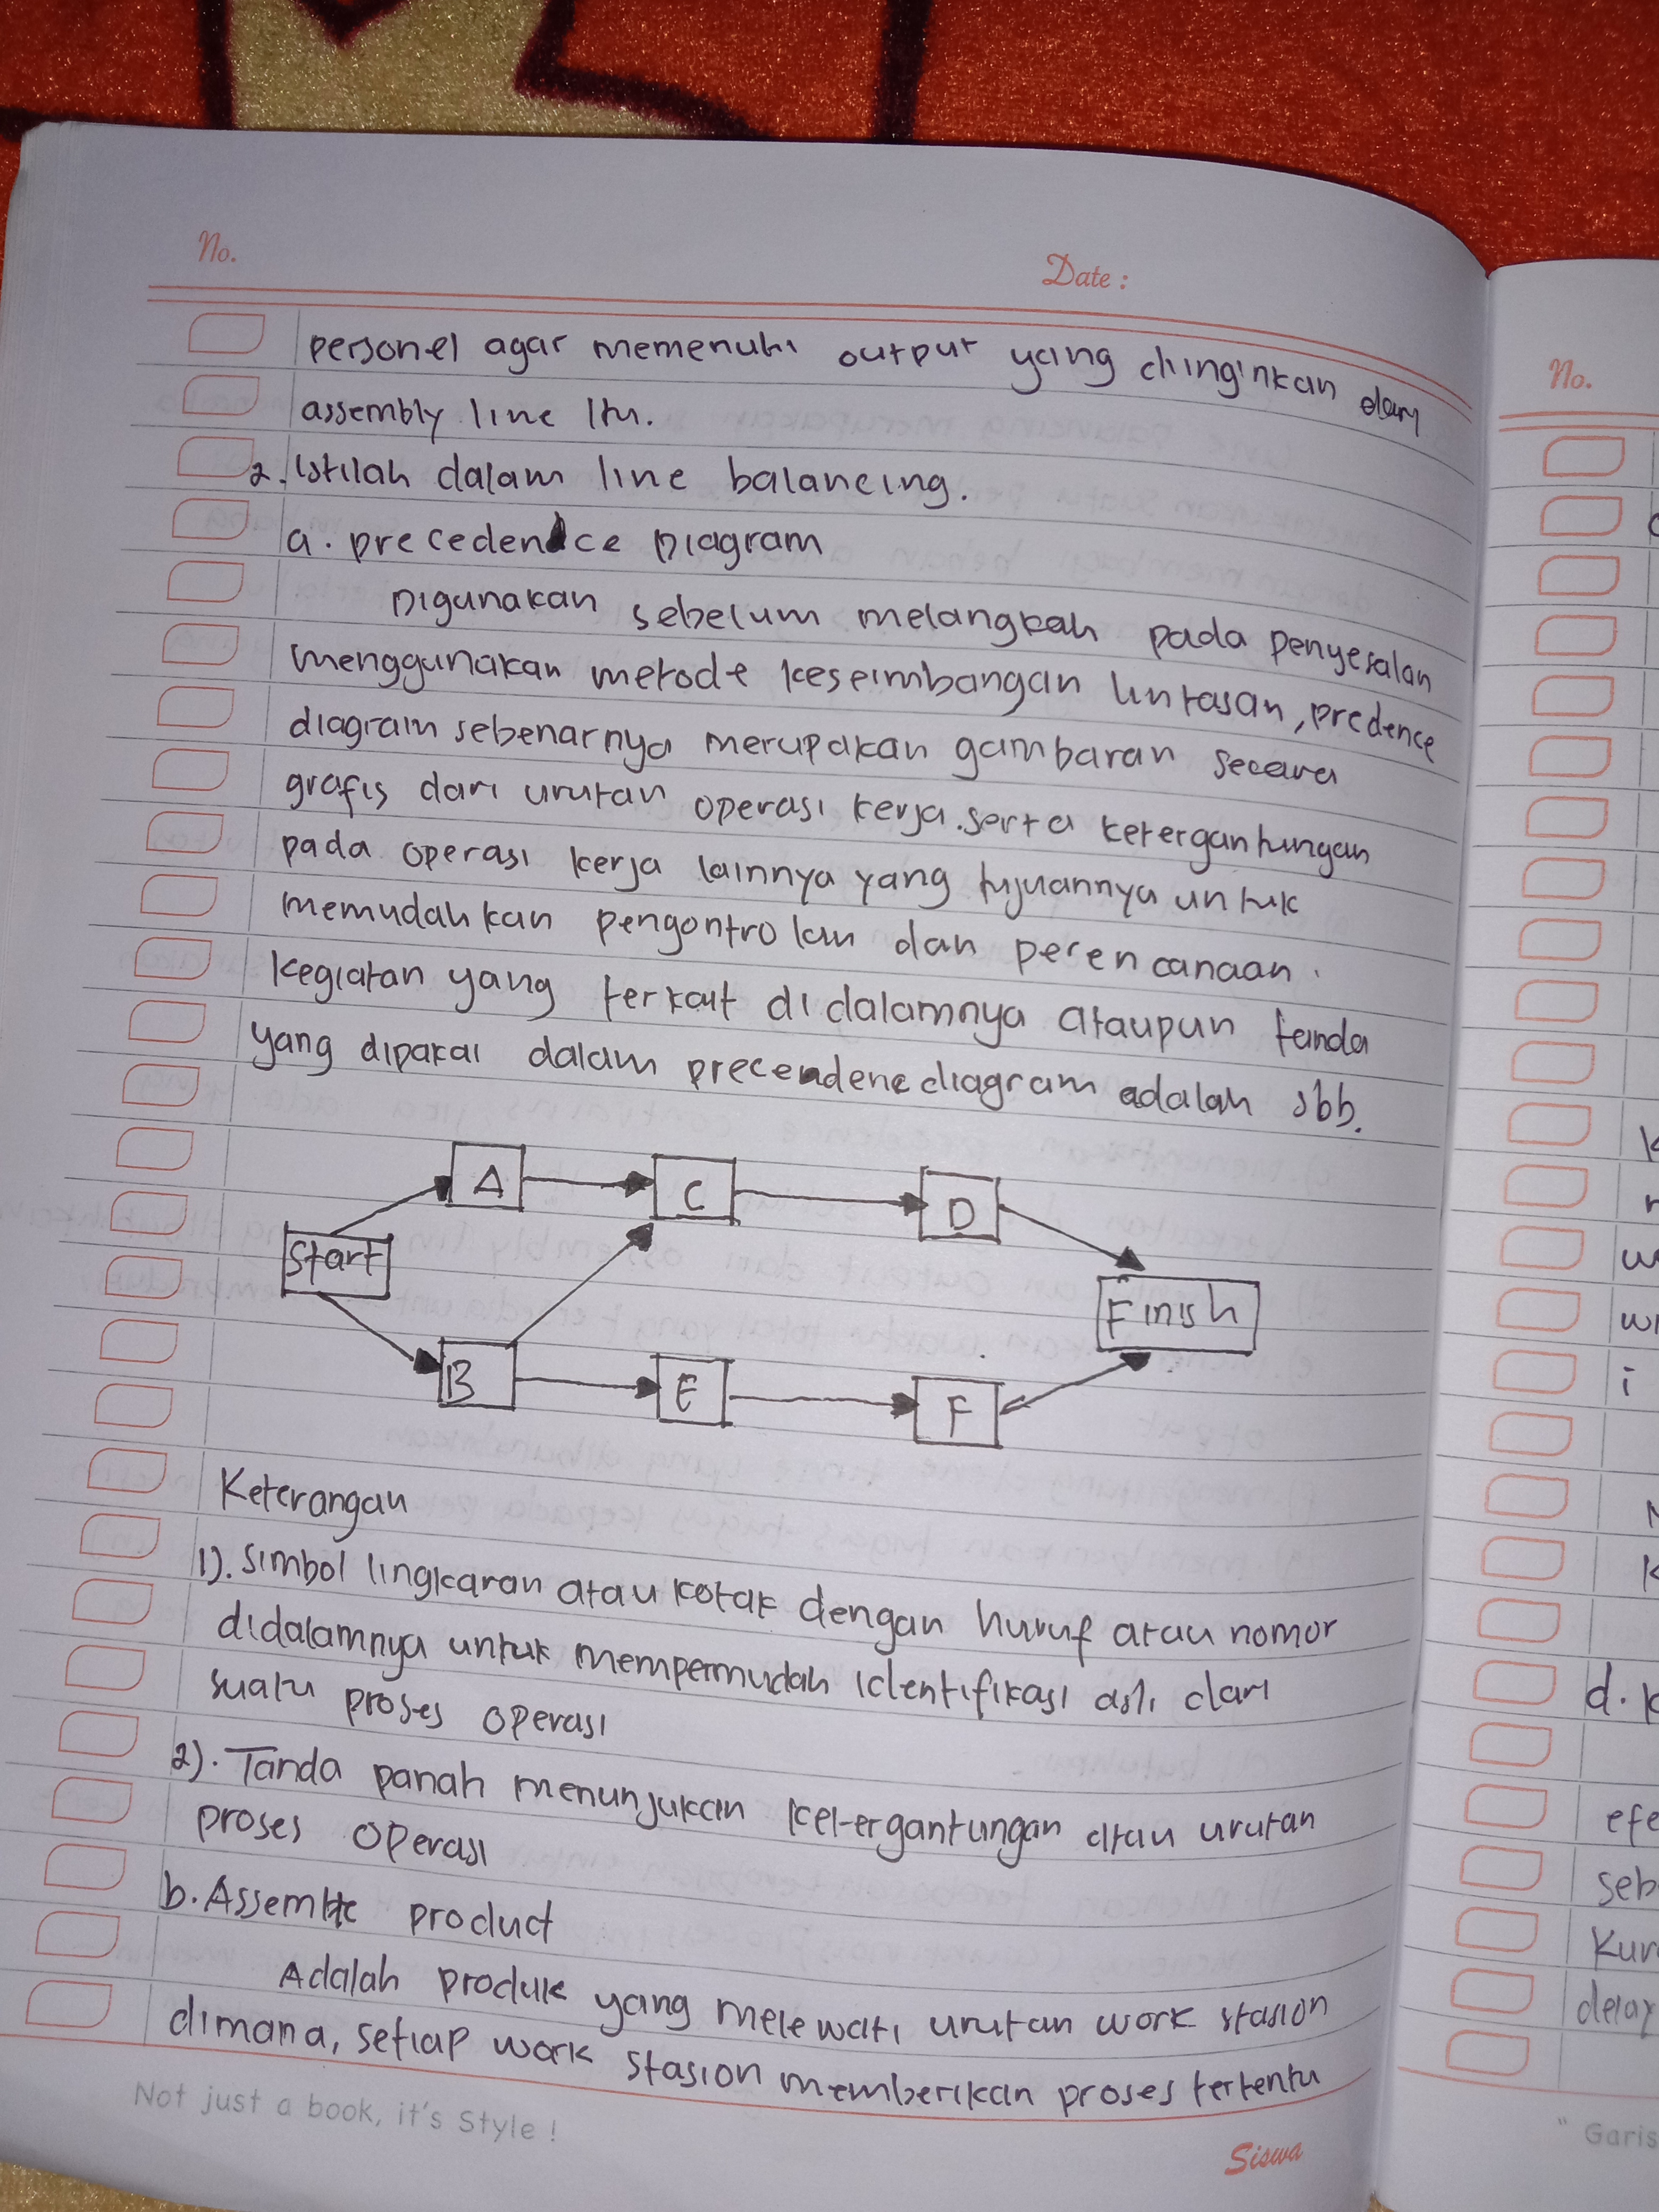 No.
Date :
personel agar memenuhi output yang diinginkan dari
assembly line itu.
2. Istilah dalam line balancing.
a. precedence Diagram
Digunakan sebelum melangkah pada penyesalan
menggunakan metode keseimbangan lintasan, predence
diagram sebenarnya merupakan gambaran secara
grafis dari urutan operasi kerja. serta ketergantungan
pada operasi kerja lainnya yang tujuannya untuk
memudahkan pengontrolan dan perencanaan
kegiatan yang terkait didalamnya ataupun tanda
yang dipakai dalam precendene diagram adalah sbb.
A
C
D
Start
Finish
B
E
F
Keterangan
1). Simbol lingkaran atau kotak dengan huruf atau nomor
didalamnya untuk mempermudah identifikasi asli dari
suatu proses operasi
2). Tanda panah menunjukan ketergantungan atau urutan
proses operasi
b. Assemble product
Adalah produk yang melewati urutan work stasion
dimana, setiap work stasion memberikan proses tertentu
Not just a book, it's Style !
Siswa
No.
d. k
efe
seb
kur
delay
" Garis